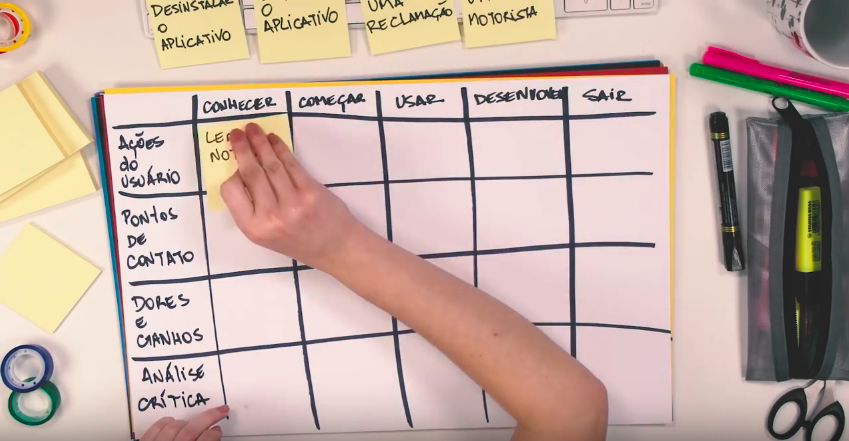 DESINSTALAR
O
APLICATIVO
O
APLICATIVO
UMA
RECLAMAÇÃO
MOTORISTA
CONHECER COMEÇAR USAR DESENVOLVER SAIR
AÇÕES
DO
USUÁRIO
LER
NOT
PONTOS
DE
CONTATO
DORES
E
GANHOS
ANÁLISE
CRÍTICA